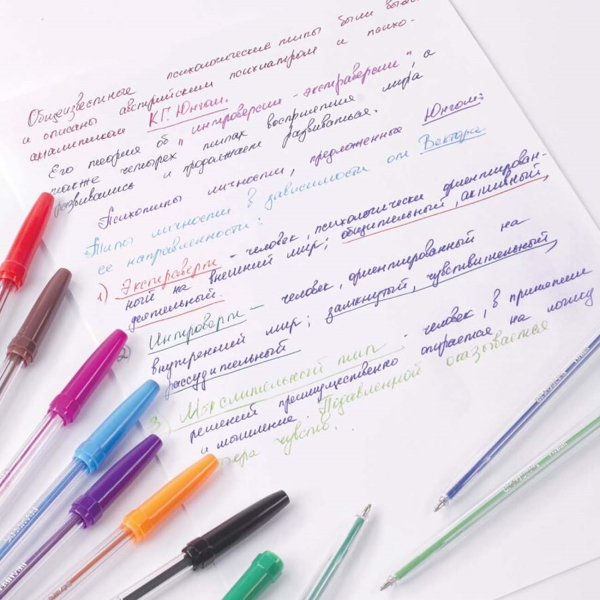 Общеизвестные психологические типы были
и описаны австрийским психиатром и психо-
аналитиком К.Г. Юнгом.
Его теория об "интроверсии - экстраверсии", а
также четырех типах восприятия мира,
развивались и продолжают развиваться.
Психотипы личности, предложенные Юнгом:
Типы личности в зависимости от Вектора
ее направленности:
1) Экстраверти - человек, психологически ориентирован-
ной на внешний мир; общительный, активный,
деятельный.
Интроверти - человек, ориентированный на
внутренний мир; замкнутый, чувствительный,
рассудительный
3) Мыслительный тип - человек, в принятии
решений преимущественно опирается на логику
и мышление. Подавленной оказывается
сфера чувств.